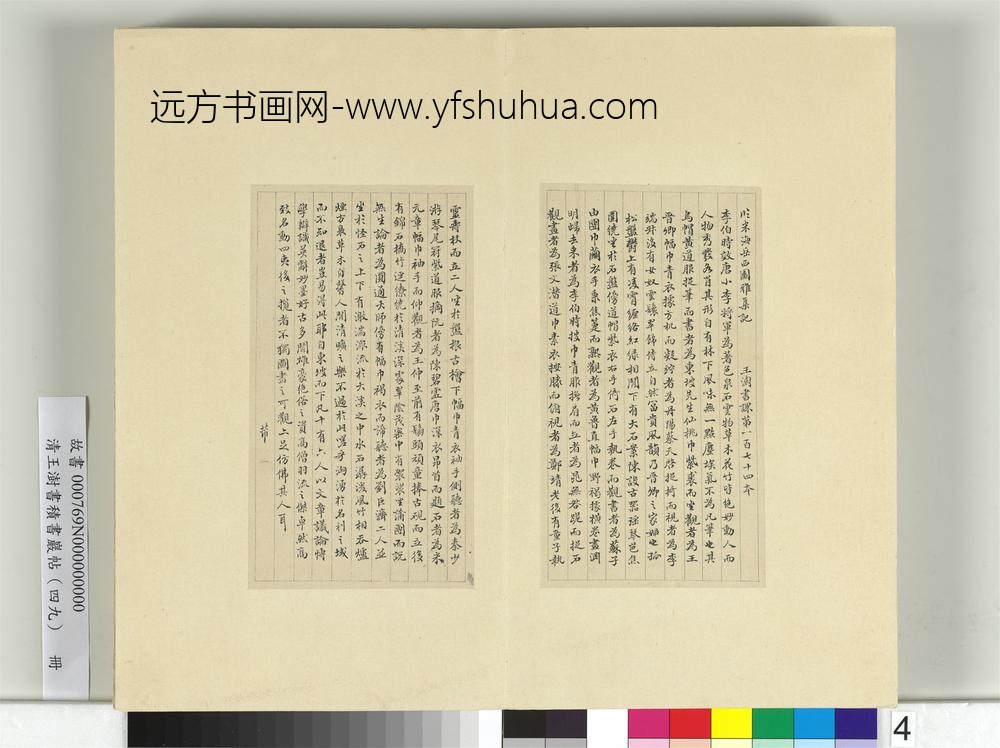 远方书画网-www.yfshuhua.com
临米海岳西園雅集記 王澍書課第一百七十四齐
李伯時效唐小李將軍為著色泉石雲物草木花竹皆绝妙動人而
人物秀發各肖其形自有林下風味無一點塵埃氣不為凡筆也其
烏帽黄道服捉筆而書者為東坡先生仙桃巾紫裘而坐觀者為王
晋卿幅巾青衣據方机而凝竚者為丹陽蔡天啓捉椅而視者為李
端叔後有女奴雲鬟翠飾侍立自然富貴風韻乃晋卿之家姬也孤
松盤欝上有凌霄纏絡紅绿相間下有大石案陳設古器瑶琴芭蕉
圍繞坐於石盤傍道帽紫衣右手倚石左手執卷而觀書者為蘇子
由團巾繭衣手秉蕉箑而熟觀者為黄魯直幅巾野褐據横卷畫淵
明歸去来者為李伯時披巾青服撫肩而立者為晁無咎跪而捉石
觀畫者為張文潜道巾素衣按膝而俯視者為鄭靖老後有童子執
靈壽杖而立二人坐於盤根古檜下幅巾青衣袖手側聽者為秦少
游琴尾冠紫道服摘阮者為陳碧虚唐巾深衣昂首而題石者為米
元章幅巾袖手而仰觀者為王仲至前有鬅頭頑童捧古硯而立後
有錦石橋竹逕繚繞於清溪深處翠陰茂密中有袈裟坐蒲團而說
無生論者為圓通大師傍有幅巾褐衣而諦聽者為劉巨濟二人並
坐於怪石之上下有激湍潨流於大溪之中水石潺湲風竹相吞爐
煙方裊草木自馨人間清曠之樂不過於此嗟乎汹湧於名利之域
而不知退者豈易得此耶自東坡而下凡十有六人以文章議論博
學辯識英辭妙墨好古多聞雄豪绝俗之資高僧羽流之傑卓然高
致名動四夷後之攬者不獨圖畫之可觀亦足仿佛其人耳
芾
故書 000769N000000000
清王澍書積書巖帖（四九） 冊
4